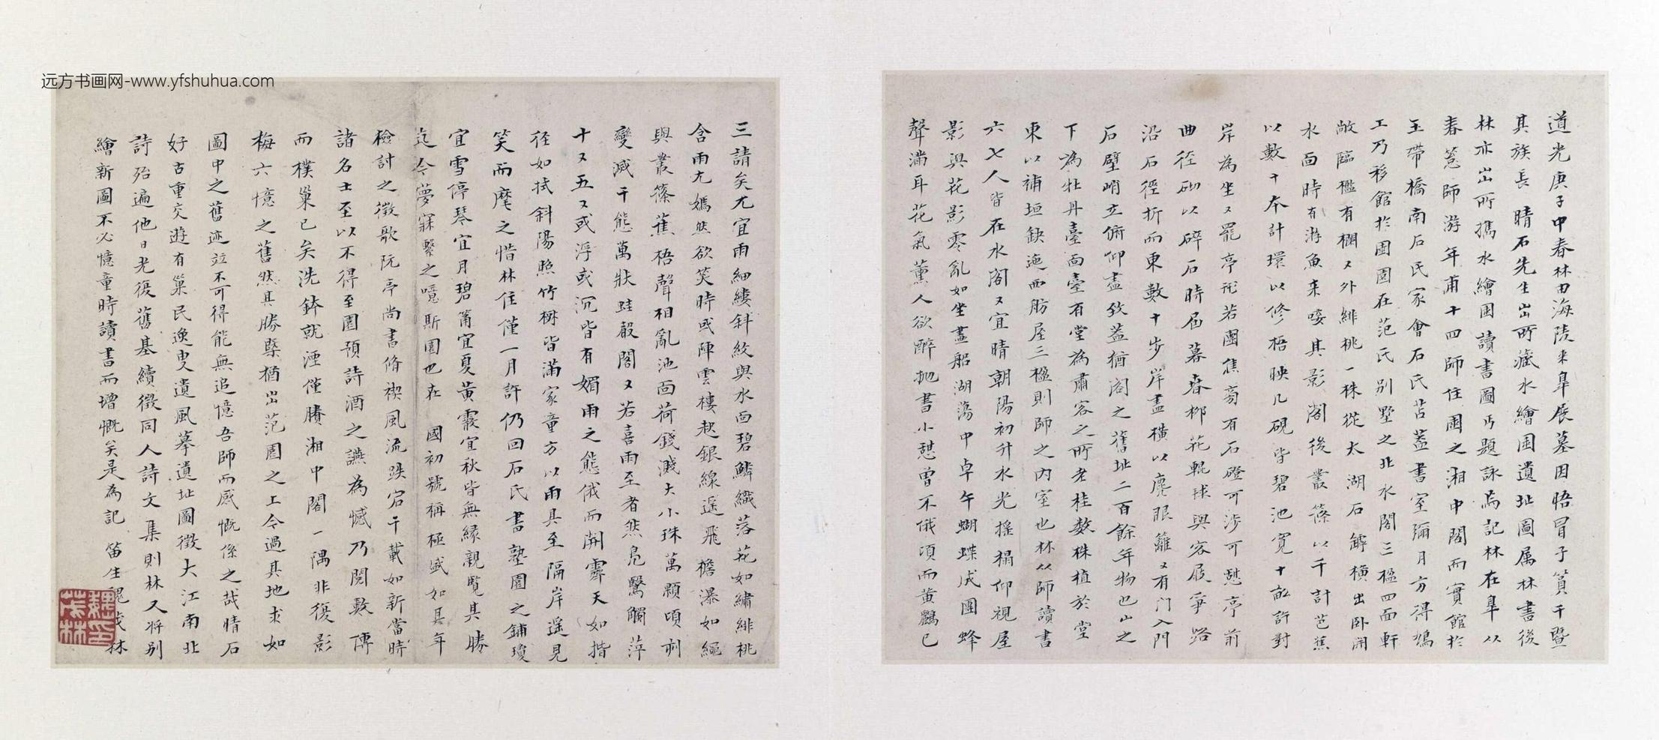 道光庚子中春林由海陵來皐展墓因晤冒子篔千暨
其族長晴石先生出所藏水繪園遺址圖属林書後
林亦出所撝水繪園讀書圖丐題詠焉記林在皐从
春薏師游年甫十四師住園之湘中閣而實館於
玉帶橋南石民家會石氏苫蓋書室彌月方得鳩
工乃移館於園園在范氏別墅之北水閣三楹四面軒
敞臨檻有欄又外緋桃一株從太湖石罅橫出卧闹
水面時有游魚來唼其影閣後叢篠以千計芭蕉
以數十本計環以修梧映几硯皆碧池寬十畝許對
岸為坐又罷亭形若團蕉旁有石磴可涉可憩亭前
曲徑砌以碎石時届暮春柳花輥球與客屐爭路
沿石徑折而東數十步岸盡橫以麂眼籬又有门入門
石壁峭立俯仰盡致蓋猶閣之舊址二百餘年物也山之
下為牡丹臺面臺有堂為肅客之所老桂數株植於堂
東以補垣缺迤西舫屋三楹則師之內室也林从師讀書
六七人皆在水閣又宜晴朝陽初升水光搖榻仰視屋
影與花影零亂如坐畫船湖蕩中卓午蝴蝶成團蜂
聲满耳花氣薰人欲醉抛書小憇曾不俄頃而黄鸝已
三請矣尤宜雨細縷斜紋與水面碧鱗織落花如繡緋桃
含雨尤嫣然欲笑時或陣雲棲起銀線遥飛檐瀑如繩
與叢篠蕉梧聲相亂池面荷錢濺大小珠萬顆頃刻
變滅千態萬狀蛙嗀閣又若喜雨至者然凫鷖鸂萍
十又五又或浮或沉皆有媚雨之態俄而開霽天如揩
徑如拭斜陽照竹樹皆滿家童方以雨具至隔岸遥見
笑而麾之惜林住僅一月許仍回石氏書塾園之鋪瓊
宜雪停琴宜月碧筩宜夏黄霞宜秋皆無緣親覽其勝
迄今夢寐繫之噫斯園也在 國初號稱極盛如其年
檢討之徵歌阮亭尚書脩禊風流跌宕千載如新當時
諸名士至以不得至園預詩酒之讌為憾乃閲數傳
而樸巢已矣洗鉢就湮僅賸湘中閣一隅非復影
梅六憶之舊然其勝槩猶出范園之上今過其地求如
圖中之舊迹竝不可得能無追憶吾師而感慨係之哉晴石
好古重交遊有巢民逸叟遺風摹遺址圖徵大江南北
詩殆遍他日光復舊基續徵同人詩文集則林又将别
繪新圖不必憶童時讀書而增慨矣是為記 笛生魏茂林
远方书画网-www.yfshuhua.com